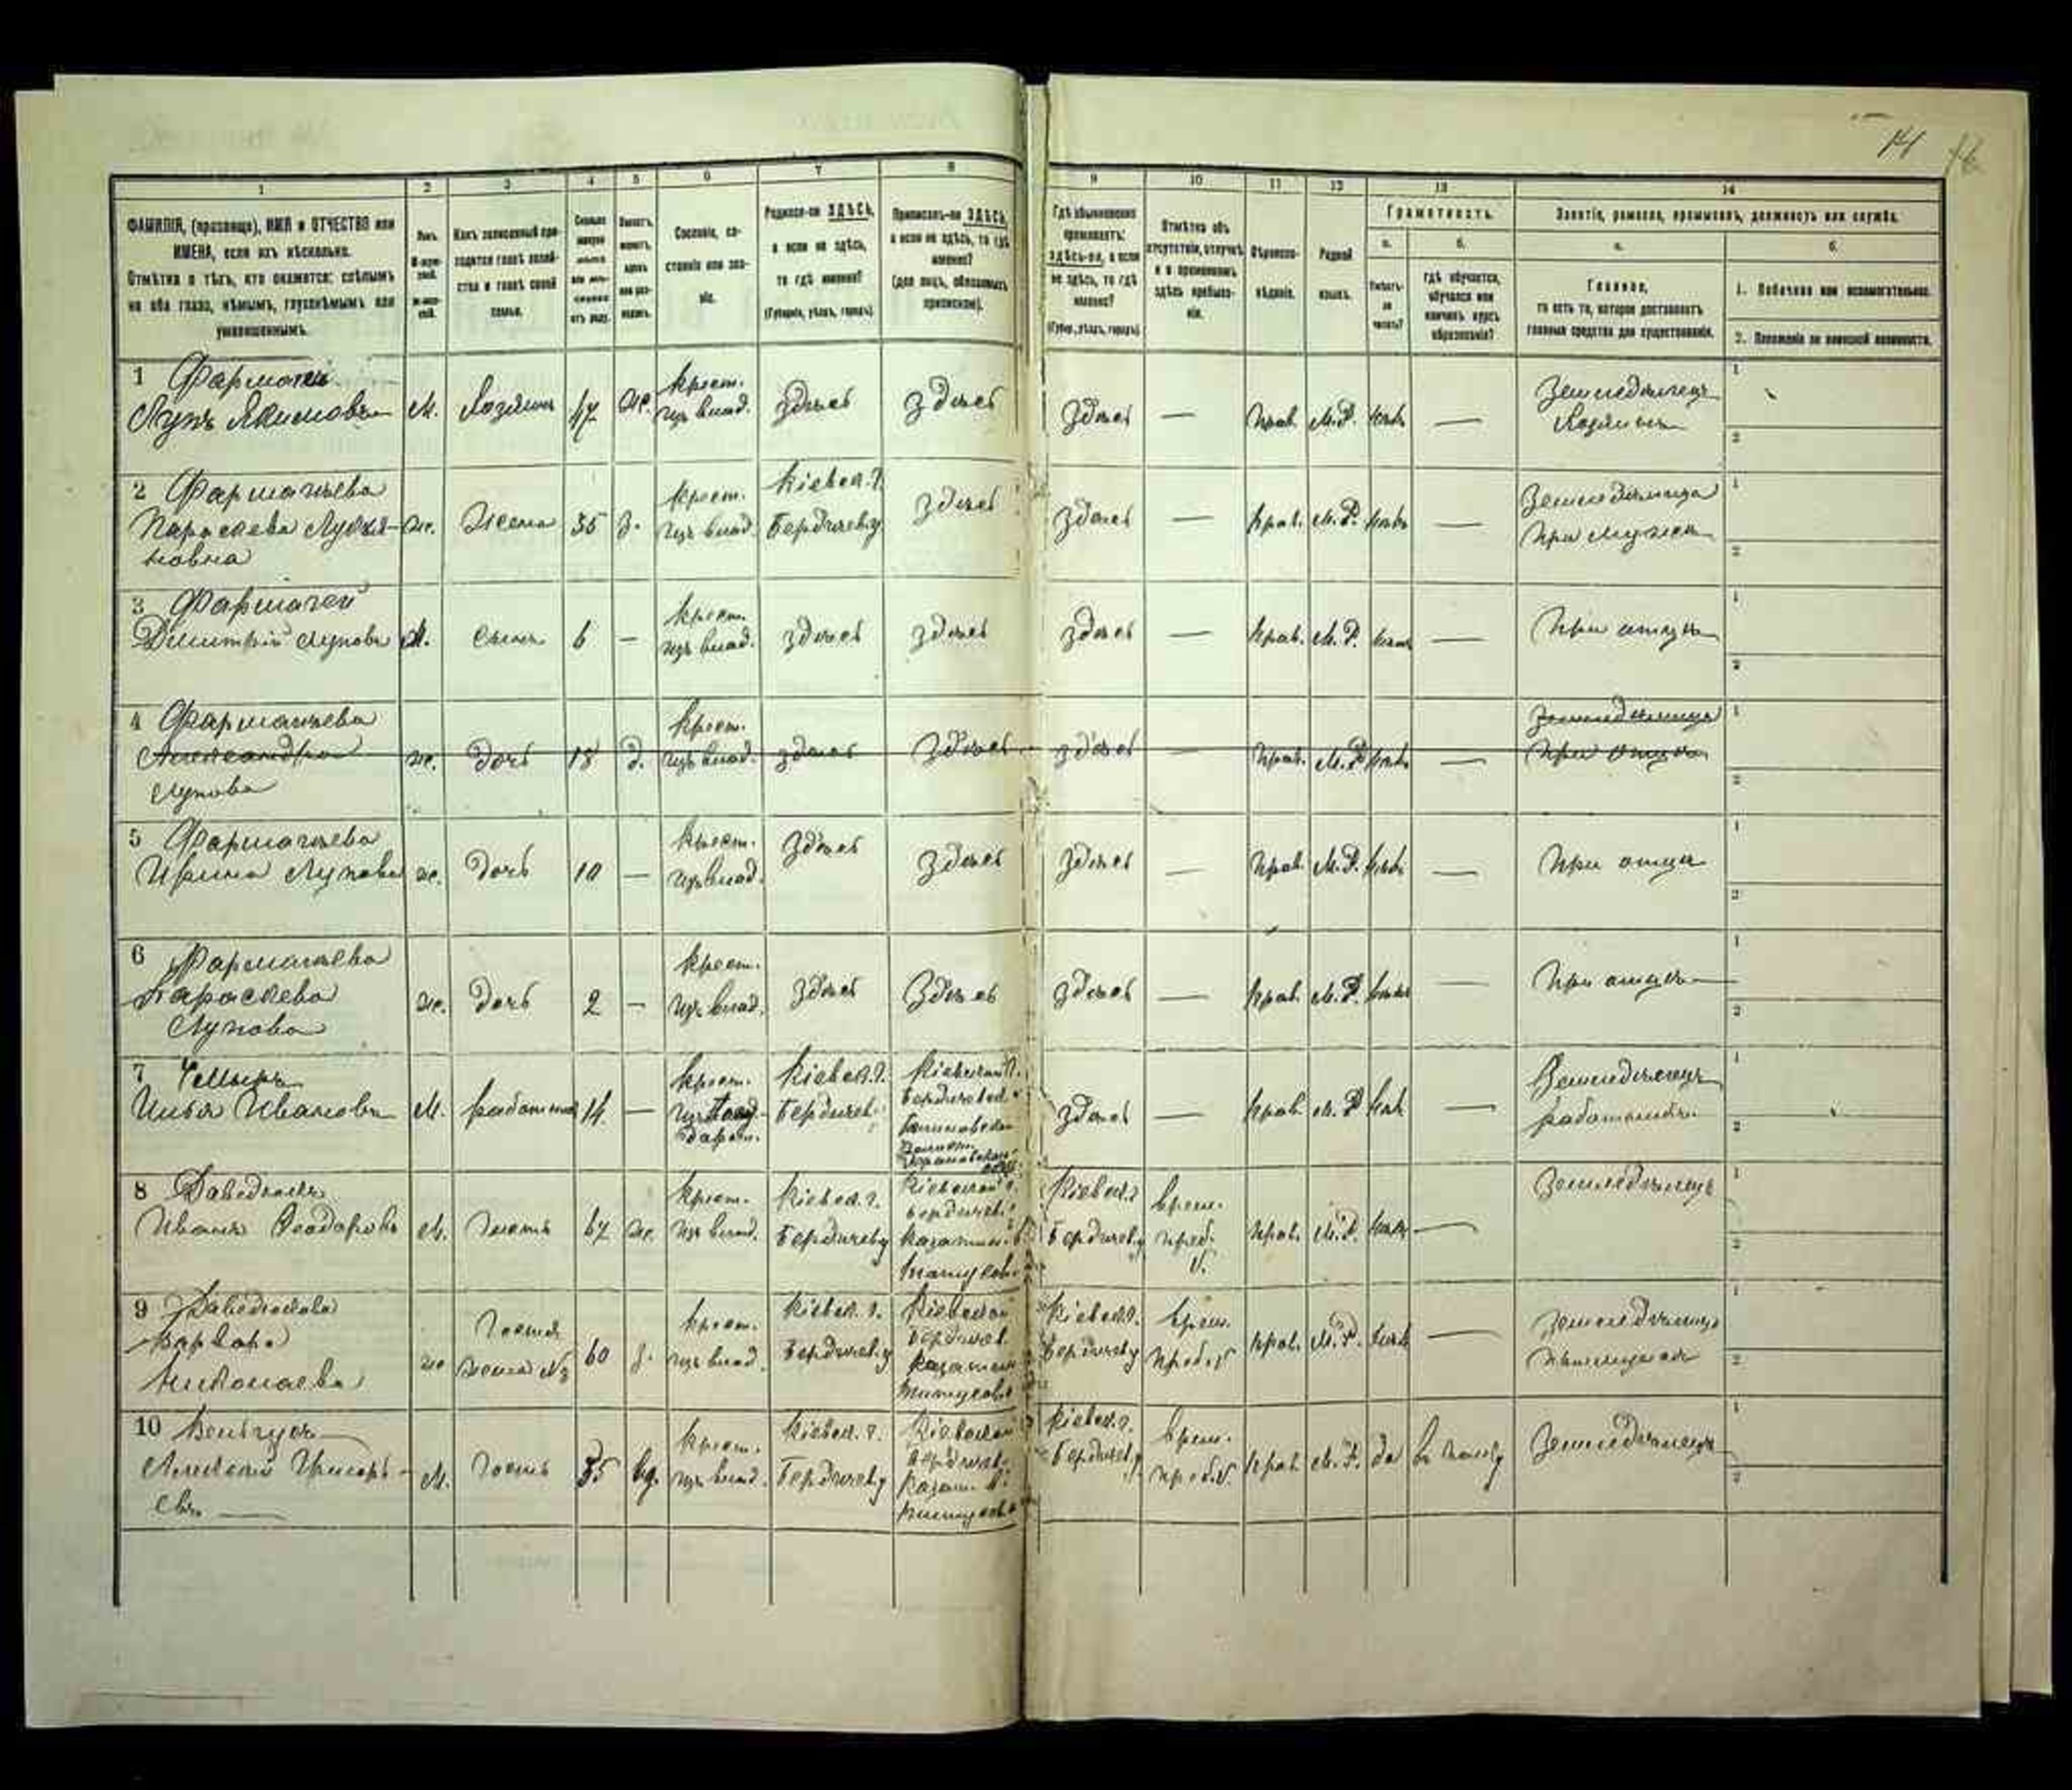 14
1
2
3
4
5
6
7
8
9
10
11
12
13
14
ФАМИЛІЯ, (прозвище), ИМЯ и ОТЧЕСТВО или
ИМЕНА, если ихъ нѣсколько.
Отмѣтка о тѣхъ, кто окажется: слѣпымъ
на оба глаза, нѣмымъ, глухонѣмымъ или
умалишеннымъ.
Полъ.
Какъ записанный при-
ходится главѣ хозяй-
ства и главѣ своей
семьи.
Сословіе, со-
стояніе или зва-
ніе.
Родился-ли ЗДѢСЬ,
а если не здѣсь,
то гдѣ именно?
(Губернія, уѣздъ, городъ).
Приписанъ-ли ЗДѢСЬ,
а если не здѣсь, то гдѣ
именно?
(для лицъ, обязанныхъ
припискою).
Гдѣ обыкновенно
проживаетъ:
здѣсь-ли, а если
не здѣсь, то гдѣ
именно?
(Губер., уѣздъ, городъ).
Отмѣтка объ
отсутствіи, отлучкѣ
и о временномъ
здѣсь пребыва-
ніи.
Вѣроиспо-
вѣданіе.
Родной
языкъ.
Грамотность.
а.
б.
Умѣетъ-
ли
читать?
гдѣ обучается,
обучался или
кончилъ курсъ
образованія?
Занятіе, ремесло, промыселъ, должность или служба.
а.
б.
Главное,
то есть то, которое доставляетъ
главныя средства для существованія.
1. Побочное или вспомогательное.
2. Положеніе по воинской повинности.
1 Фармагей
Лупъ Якимовъ
М. Хозяинъ 47 же. крест. изъ влад. здѣсь здѣсь здѣсь — прав. М.Р. нѣтъ — Земледѣлецъ Хозяинъ
2 Фармагѣева
Параскева
новна
же. Жена 35 з. крест. изъ влад. Кіевск. г. Бердичеву здѣсь здѣсь — прав. М.Р. нѣтъ — Земледѣлица при мужѣ
3 Фармагей
Димитрій Луповъ
М. сынъ 6 — крест. изъ влад. здѣсь здѣсь здѣсь — прав. М.Р. нѣтъ — При отцѣ
4 Фармагѣева
Александра
Лупова
же. дочь 18 д. крест. изъ влад. здѣсь здѣсь здѣсь — прав. М.Р. нѣтъ — земледѣлица при отцѣ
5 Фармагѣева
Ирина Лупова
же. дочь 10 — крест. изъ влад. здѣсь здѣсь здѣсь — прав. М.Р. нѣтъ — При отцѣ
6 Фармагѣева
Параскева
Лупова
же. дочь 2 — крест. изъ влад. здѣсь здѣсь здѣсь — прав. М.Р. нѣтъ — При отцѣ
7
Илья Ивановъ
М. работникъ 14 — крест. Кіевск. г. Бердичев. Кіевской г. Бердичевск. здѣсь — прав. М.Р. нѣтъ — Земледѣлецъ работникъ
8
Иванъ Ѳеодоровъ
М. Гость 67 же. крест. изъ влад. Кіевск. г. Бердичеву Кіевской г. Бердичев. Кіевск. г. Бердичеву врем. преб. прав. М.Р. нѣтъ — Земледѣлецъ
9
Варвара
Николаева
же Гостья жена 60 з. крест. изъ влад. Кіевск. г. Бердичеву Кіевской Бердичев. Кіевск. г. Бердичеву врем. преб. прав. М.Р. нѣтъ — Земледѣлица
10
Алексей Григорь-
евъ —
М. Гость 35 вд. крест. изъ влад. Кіевск. г. Бердичеву Кіевской Бердичев. Кіевск. г. Бердичеву врем. преб. прав. М.Р. да Земледѣлецъ